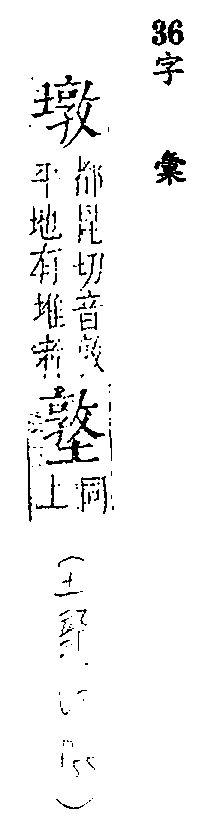 36字彙
墩
都昆切音敦
平地有堆者
墪
同
上
(土部